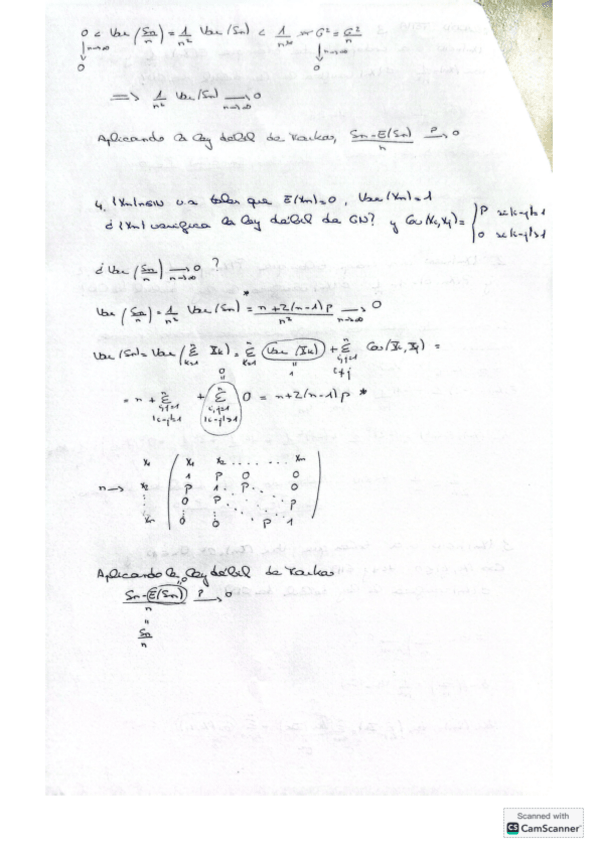 0 < Var (Sn/n) = 1/n² Var (Sn) < 1/n² n σ² = σ²/n
↓ n→∞ ↓ n→∞
0 0
⟹ 1/n² Var (Sn) ⟶ n→∞ 0
Aplicando la ley débil de Markov, (Sn-E(Sn))/n ⟶P 0
4. {Xn}n∈ℕ v.a tales que E(Xn)=0, Var(Xn)=1
¿{Xn} verifica la ley débil de GN? y Cov(Xi,Xj) = { ρ si |i-j|=1
0 si |i-j|>1
¿Var (Sn/n) ⟶ n→∞ 0?
Var (Sn/n) = 1/n² Var (Sn) =* (n+2(n-1)ρ)/n² ⟶ n→∞ 0
Var (Sn) = Var (Σ Xk) = Σ Var (Xk) + Σ Cov (Xi, Xj) =
k=1 n k=1 n =1 i,j=1 n i≠j
= n + Σ + Σ 0 = n+2(n-1)ρ *
i,j=1 n i,j=1 n
|i-j|=1 |i-j|>1
x1 x2 ...... xn
x1 1 ρ 0 0
n→ x2 ρ 1 ρ 0
0 ρ ρ
xn 0 0 ρ 1
Aplicando la ley débil de Markov
(Sn-E(Sn))/n ⟶P 0
=
Sn/n
Scanned with
CS CamScanner